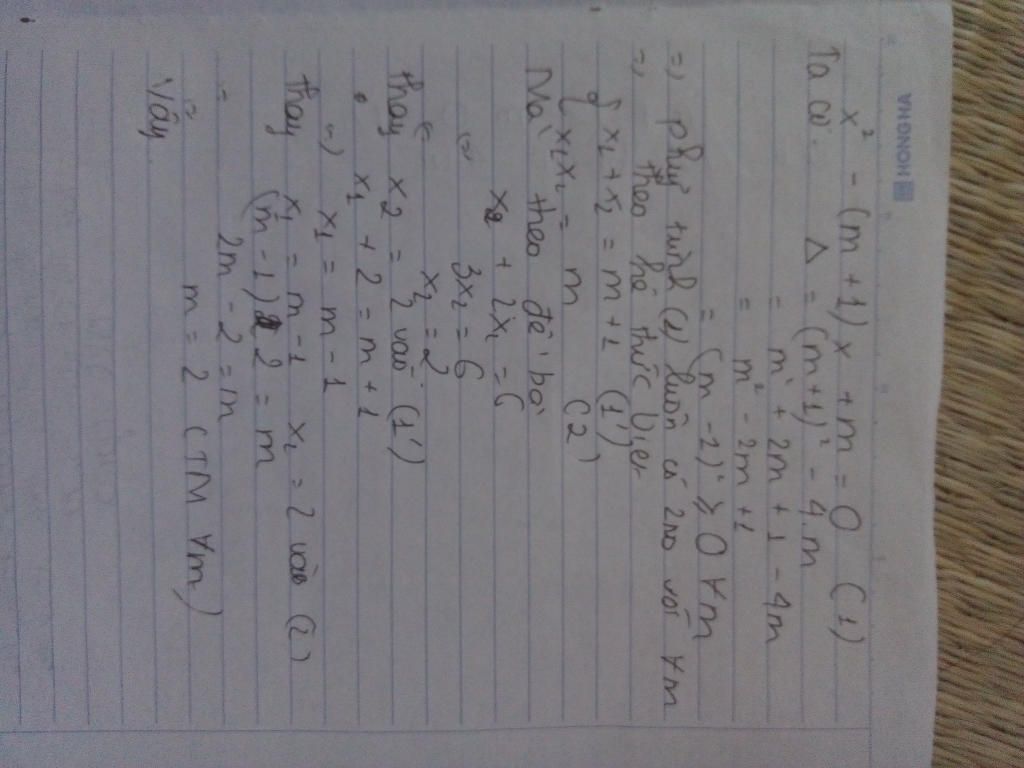 HONG HA
x² - (m + 1)x + m = 0 (1)
Ta có: Δ = (m+1)² - 4.m
= m² + 2m + 1 - 4m
= m² - 2m + 1
= (m - 1)² ≥ 0 ∀m
=> phg trình (1) luôn có 2no với ∀m
=> theo hệ thức Viet
{ x₁ + x₂ = m + 1 (1')
{ x₁x₂ = m (2)
Mà theo đề bài
x₂ + 2x₂ = 6
<=> 3x₂ = 6
<=> x₂ = 2
thay x₂ = 2 vào (1')
x₁ + 2 = m + 1
=> x₁ = m - 1
thay x₁ = m - 1 x₂ = 2 vào (2)
(m - 1) 2 = m
= 2m - 2 = m
= m = 2 (TM ∀m)
Vậy